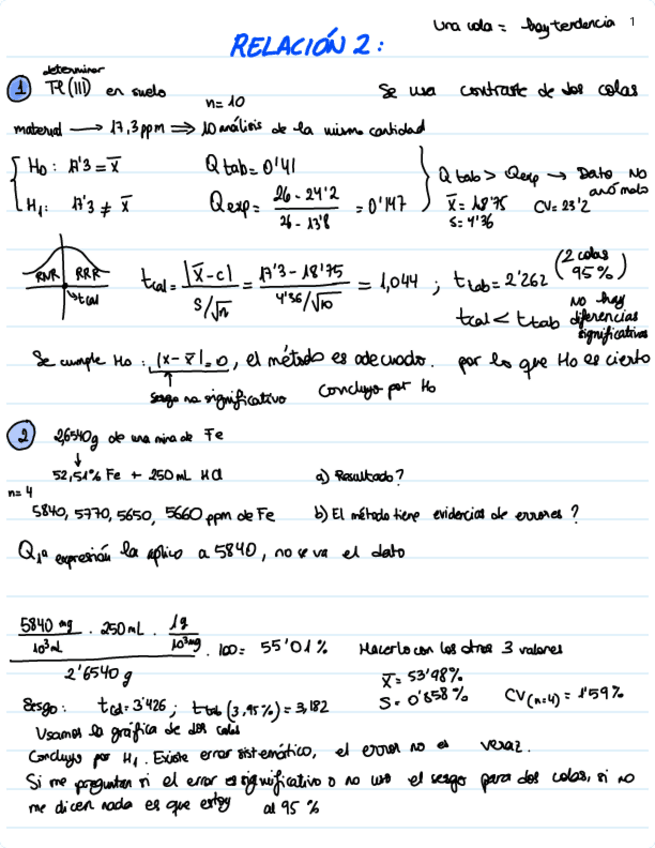 una cola = hay tendencia 1
RELACIÓN 2:
determinar
1 Tl (III) en suelo n=10 Se usa contraste de dos colas
material → 17,3 ppm ⇒ 10 análisis de la misma cantidad
H₀: 17'3 = x̅ Q tab = 0'41 Q tab > Q exp → Dato NO anómalo
H₁: 17'3 ≠ x̅ Q exp = (26 - 24'2)/(26 - 13'8) = 0'147 x̅ = 18'75 CV = 23'2
S = 4'36
RNR RRR tcal
tcal = |x̅ - c| / (s/√n) = (17'3 - 18'75)/(4'36/√10) = 1,044 ; t tab = 2'262 (2 colas 95%)
tcal < t tab No hay diferencias significativas
Se cumple H₀: |x - x̅| = 0, el método es adecuado. por lo que H₀ es cierto
sesgo no significativo Concluyo por H₀
2 2,6540g de una mina de Fe
↓
52,51% Fe + 250 mL HCl a) Resultado?
n=4
5840, 5770, 5650, 5660 ppm de Fe b) El método tiene evidencias de errores?
Q, 1ª expresión la aplico a 5840, no se va el dato
(5840 mg / 10³ mL · 250 mL · 1g / 10³mg) / 2'6540 g · 100 = 55'01% Hacerlo con los otros 3 valores
x̅ = 53'98%
S = 0'858% CV(n=4) = 1'59%
Sesgo: tcal = 3'426 ; t tab (3, 95%) = 3,182
Usamos la gráfica de dos colas
Concluyo por H₁. Existe error sistemático, el error no es veraz.
Si me preguntan si el error es significativo o no uso el sesgo para dos colas, si no
me dicen nada es que estoy al 95 %